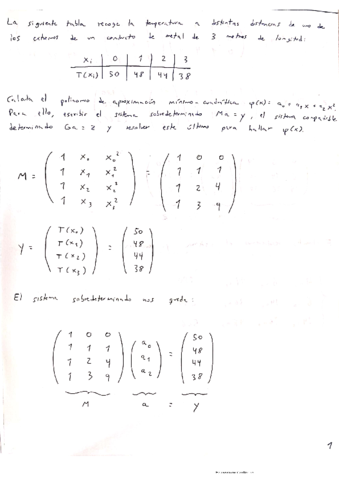 La siguiente tabla recoge la temperatura a distintas distancias de uno de
los extremos de un conducto de metal de 3 metros de longitud:
xi | 0 | 1 | 2 | 3
T(xi) | 50 | 48 | 44 | 38
Calcula el polinomio de aproximación mínimo-cuadrática φ(x) = a₀ + a₁x + a₂x².
Para ello, escribir el sistema sobredeterminado Ma = y, el sistema compatible
determinado Ga = z y resolver este último para hallar φ(x).
M = ( 1 x₀ x₀² ; 1 x₁ x₁² ; 1 x₂ x₂² ; 1 x₃ x₃² ) = ( 1 0 0 ; 1 1 1 ; 1 2 4 ; 1 3 9 )
Y = ( T(x₀) ; T(x₁) ; T(x₂) ; T(x₃) ) = ( 50 ; 48 ; 44 ; 38 )
El sistema sobredeterminado nos queda:
( 1 0 0 ; 1 1 1 ; 1 2 4 ; 1 3 9 ) ( a₀ ; a₁ ; a₂ ) = ( 50 ; 48 ; 44 ; 38 )
M a = Y
1